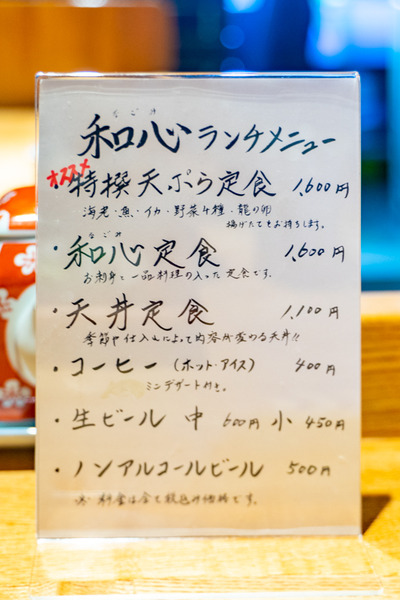 なごみ
和心ランチメニュー
オススメ
・特撰天ぷら定食 1,600円
海老・魚・イカ・野菜4種・龍の卵
揚げたてをお持ちします。
なごみ
・和心定食 1,600円
お刺身と一品料理の入った定食です。
・天丼定食 1,100円
季節や仕入れによって内容が変わる天丼!!
・コーヒー(ホット・アイス) 400円
ミニデザート付き。
・生ビール 中 600円 小 450円
・ノンアルコールビール 500円
※料金は全て税込の価格です。